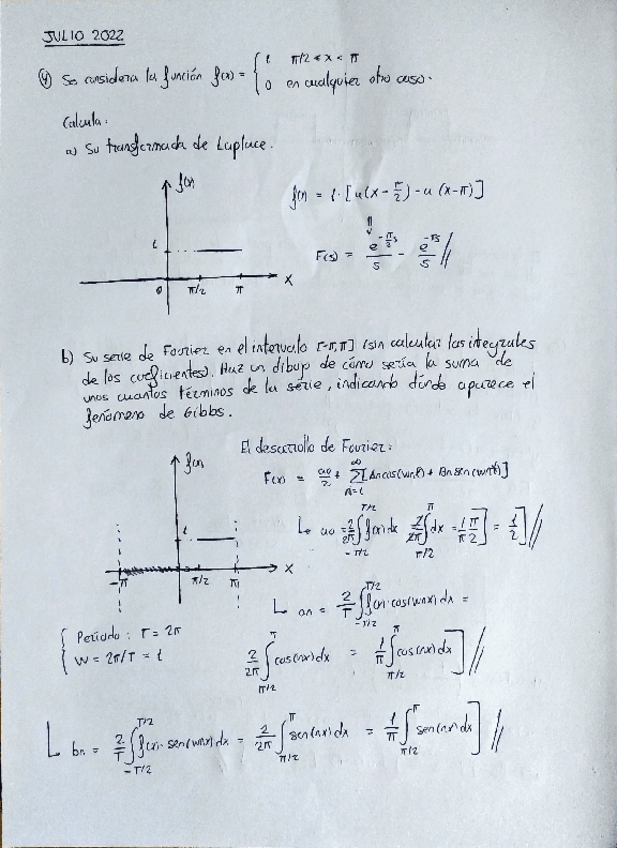 JULIO 2022
④ Se considera la función f(x) = { 1 π/2 < x < π
0 en cualquier otro caso.
Calcula:
a) Su transformada de Laplace.
f(x)
1
0 π/2 π x
f(x) = 1·[u(x - π/2) - u(x-π)]
⇓
F(s) = e^{-π/2 s}/s - e^{-πs}/s //
b) Su serie de Fourier en el intervalo [-π,π] (sin calcular las integrales
de los coeficientes). Haz un dibujo de cómo sería la suma de
unos cuantos términos de la serie, indicando dónde aparece el
fenómeno de Gibbs.
El desarrollo de Fourier:
f(x)
1
-π π/2 π x
F(x) = a0/2 + ∑_{n=1}^{∞} [An cos(wnx) + Bn sen(wnx)]
↳ a0 = 2/2π ∫_{-T/2}^{T/2} f(x) dx = 2/2π ∫_{π/2}^{π} dx = 1/π [π/2] = 1/2] //
↳ an = 2/T ∫_{-T/2}^{T/2} f(x)·cos(wnx) dx =
2/2π ∫_{π/2}^{π} cos(nx) dx = 1/π ∫_{π/2}^{π} cos(nx) dx] //
{ Período: T = 2π
W = 2π/T = 1
↳ bn = 2/T ∫_{-T/2}^{T/2} f(x)·sen(wnx) dx = 2/2π ∫_{π/2}^{π} sen(nx) dx = 1/π ∫_{π/2}^{π} sen(nx) dx] //